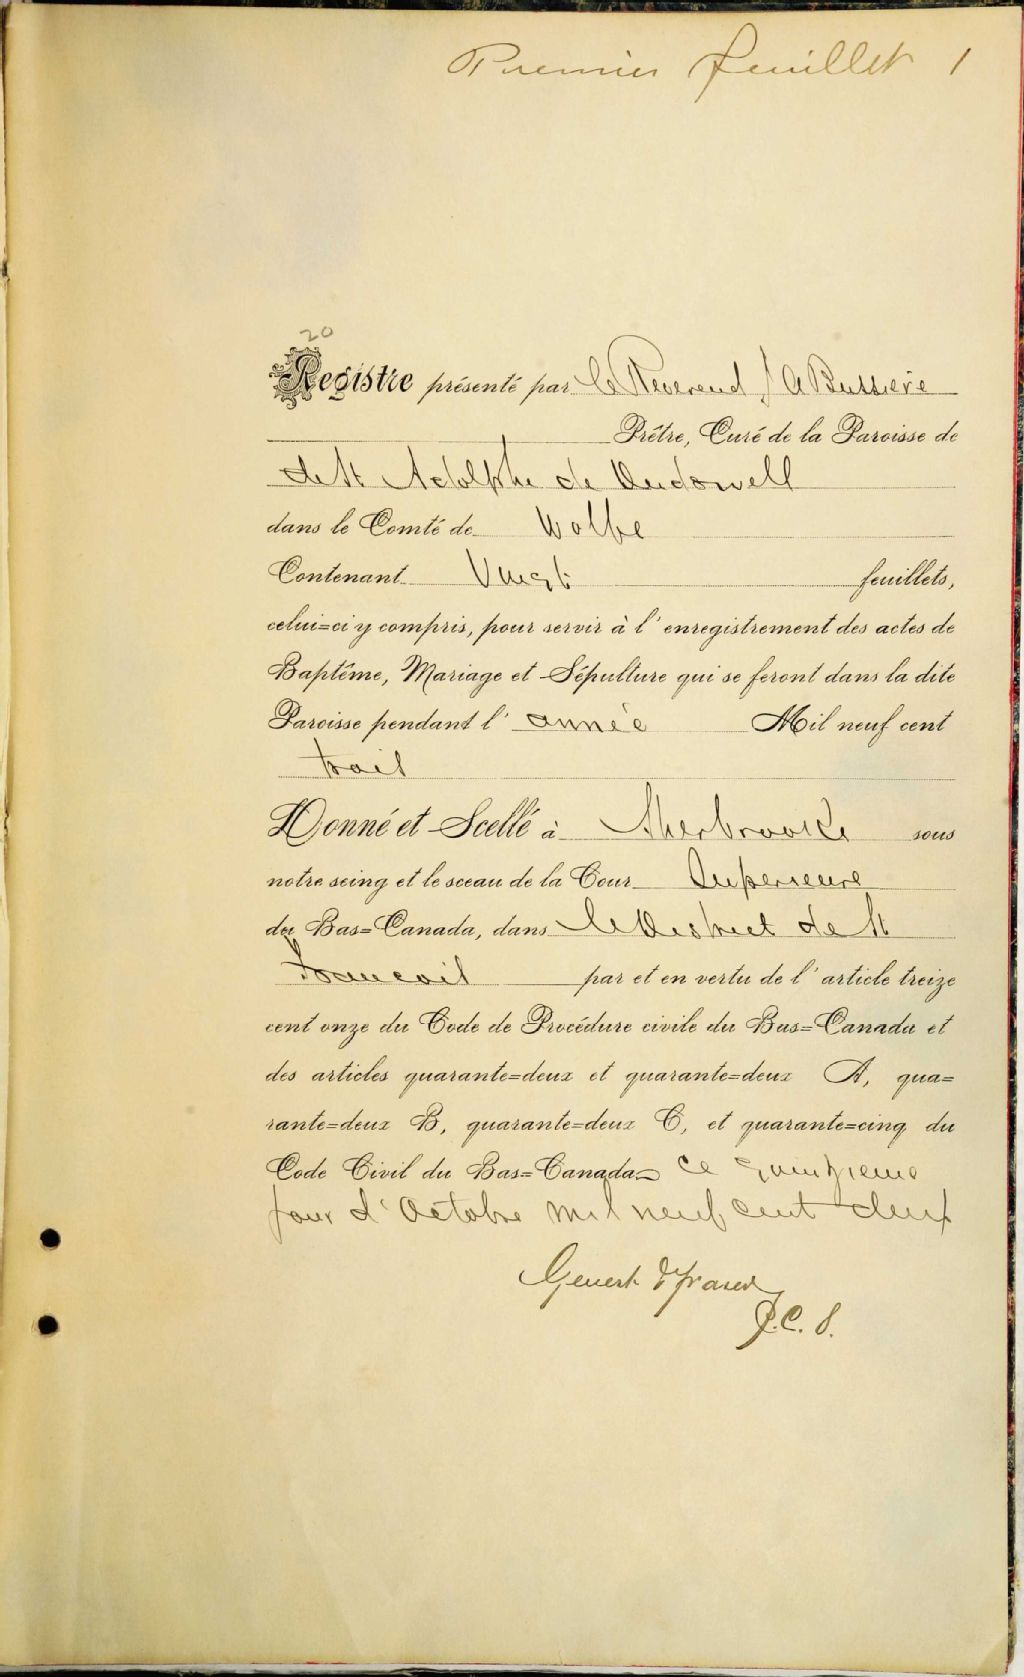 Premier feuillet 1
20
Registre présenté par le Révérend J A Bussière
Prêtre, Curé de la Paroisse de
de St Adolphe de Dudswell
dans le Comté de Wolfe
Contenant Vingt feuillets,
celui=ci y compris, pour servir à l'enregistrement des actes de
Baptême, Mariage et Sépulture qui se feront dans la dite
Paroisse pendant l'année Mil neuf cent
trois
Donné et Scellé à Sherbrooke sous
notre seing et le sceau de la Cour Supérieure
du Bas=Canada, dans le District de St
Francois par et en vertu de l'article treize
cent onze du Code de Procédure civile du Bas=Canada et
des articles quarante=deux et quarante=deux A, qua=
rante=deux B, quarante=deux C, et quarante=cinq du
Code Civil du Bas=Canada ce quinzieme
jour d'Octobre mil neuf cent deux
P.C.S.